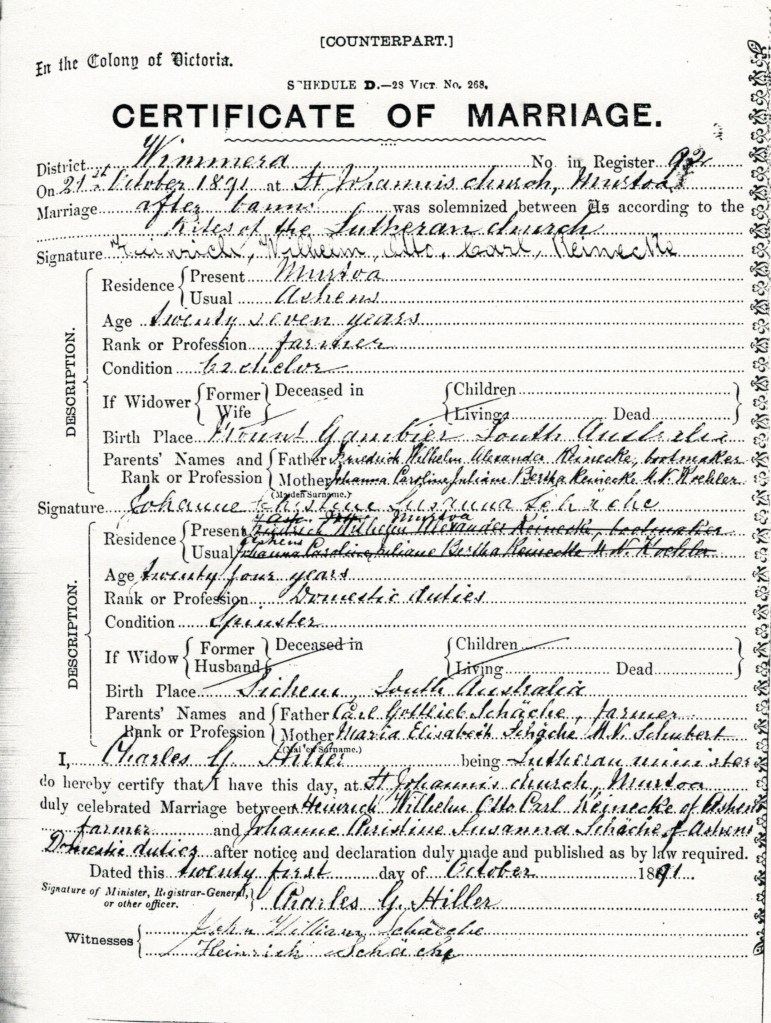 [COUNTERPART.]
In the Colony of Victoria.
SCHEDULE D.—28 VICT. No. 268.
CERTIFICATE OF MARRIAGE.
District Wimmera No. in Register 92
On 21st October 1891 at St Johannis church, Murtoa
Marriage after banns was solemnized between Us according to the
Rites of the Lutheran church
Signature Heinrich, Wilhelm, Otto, Carl, Reinecke
DESCRIPTION.
Residence { Present Murtoa
Usual Ashens
Age twenty seven years
Rank or Profession farmer
Condition bachelor
If Widower { Former Wife } Deceased in { Children Living Dead }
Birth Place Mount Gambier South Australia
Parents' Names and Rank or Profession { Father Friedrich Wilhelm Alexander Reinecke, bootmaker
Mother Johanna Caroline Juliane Bertha Reinecke M.N. Koehler
(Maiden Surname.)
Signature Johanne Christine Susanna Schäche
DESCRIPTION.
Murtoa
Residence { Present Friedrich Wilhelm Alexander Reinecke, bootmaker
Ashens
Usual Johanna Caroline Juliane Bertha Reinecke M.N. Koehler
Age twenty four years
Rank or Profession Domestic duties
Condition Spinster
If Widow { Former Husband } Deceased in { Children Living Dead }
Birth Place South Australia
Parents' Names and Rank or Profession { Father Carl Gottlieb Schäche, farmer
Mother Maria Elisabeth Schäche M.N. Schubert
(Maiden Surname.)
I, Charles G. Hiller being Lutheran minister
do hereby certify that I have this day, at St Johannis church, Murtoa
duly celebrated Marriage between Heinrich Wilhelm Otto Carl Reinecke of Ashens
farmer and Johanne Christine Susanna Schäche of Ashens
Domestic duties after notice and declaration duly made and published as by law required.
Dated this twenty first day of October 1891.
Signature of Minister, Registrar-General, or other officer. } Charles G. Hiller
Witnesses { John William Schäche
Heinrich Schäche